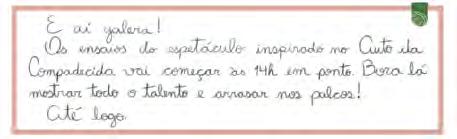 E aí galera!
Os ensaios do espetáculo inspirado no Auto da
Compadecida vai começar às 14h em ponto. Bora lá
mostrar todo o talento e arrasar nos palcos!
Até logo.